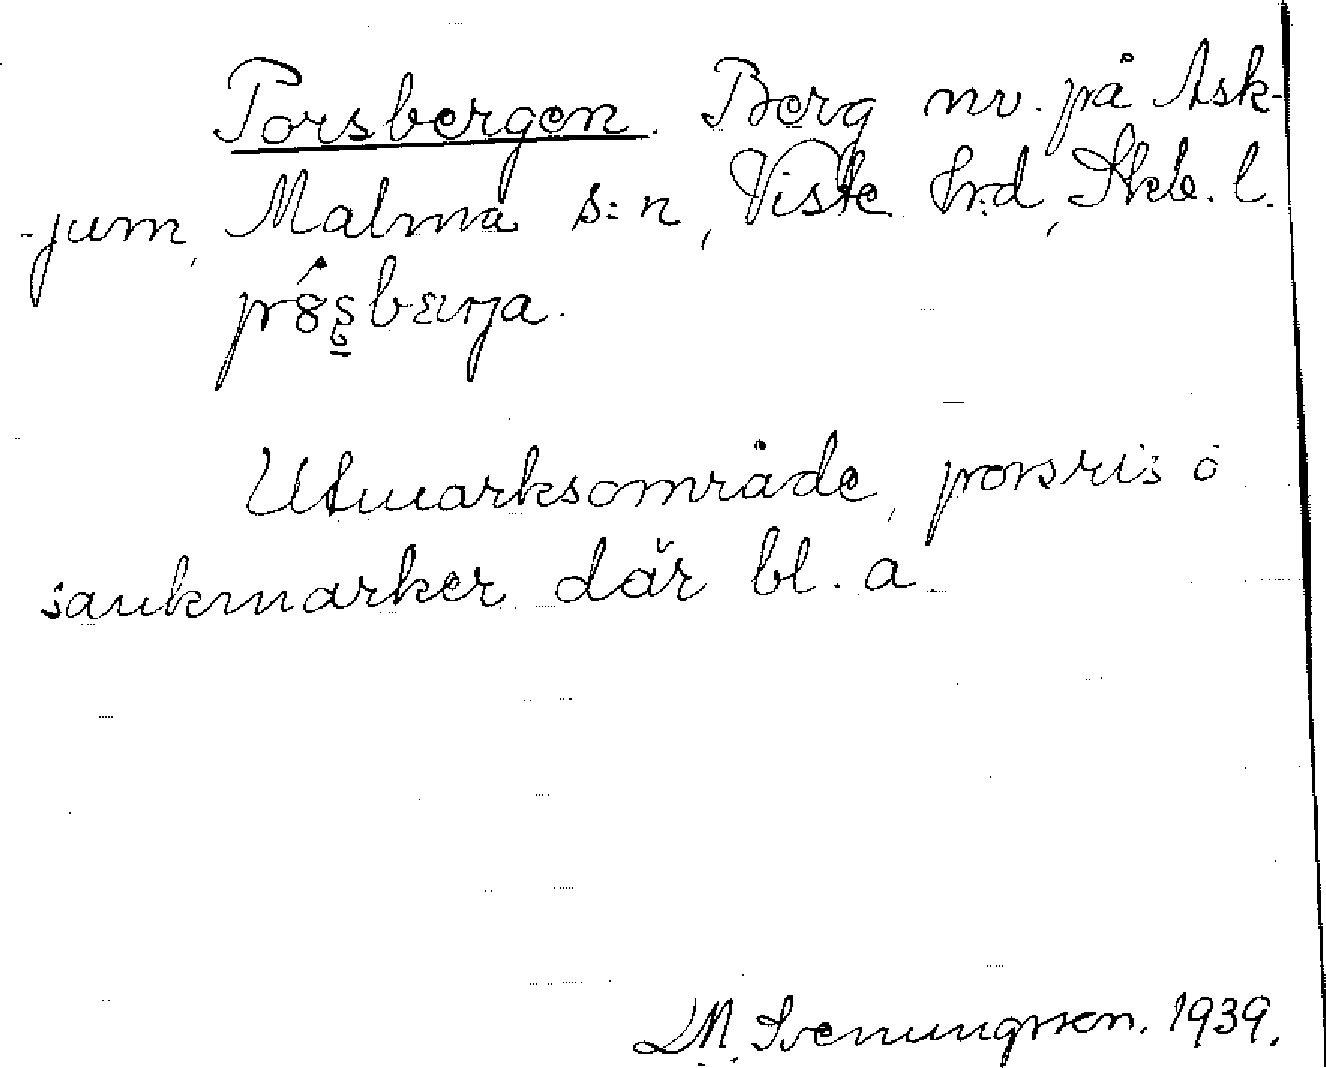 Porsbergen. Berg nv. på Ask-
-jum, Malma s:n, Viste hrd, Skb. l.
pr8́s̱bærja.
Utmarksområde, porsris o
sankmarker där bl. a.
LM. Svenungsson. 1939.